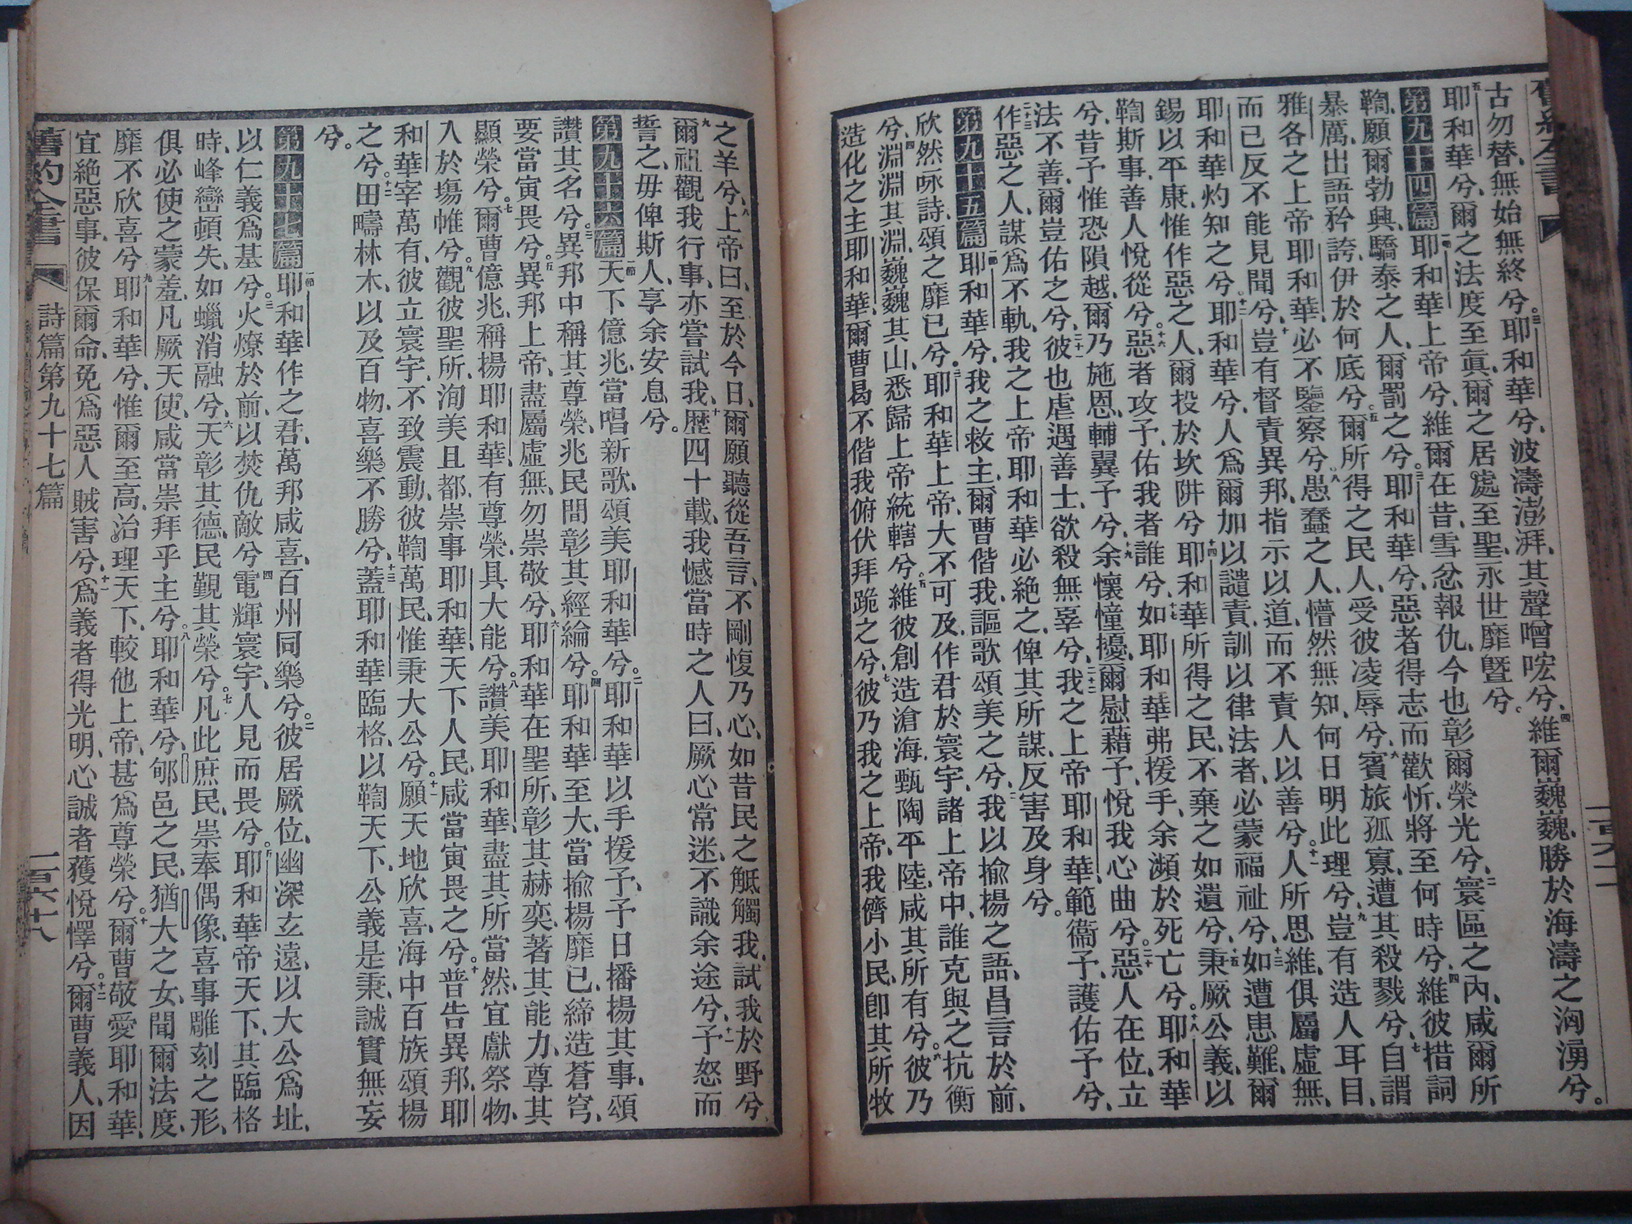 舊約全書
古勿替、無始無終兮。三耶和華兮、波濤澎湃、其聲噌吰兮、四維爾巍巍、勝於海濤之洶湧兮。
五耶和華兮、爾之法度至眞、爾之居處至聖、永世靡曁兮。
第九十四篇 一節耶和華上帝兮、維爾在昔雪忿報仇、今也彰爾榮光兮、二寰區之內、咸爾所
鞫、願爾勃興、驕泰之人、爾罰之兮、三耶和華兮、惡者得志而歡忻、將至何時兮、四維彼措詞
暴厲、出語矜誇、伊於何底兮、五爾所得之民人、受彼凌辱兮、六賓旅孤寡、遭其殺戮兮、七自謂
雅各之上帝耶和華、必不鑒察兮、八愚蠢之人、懵然無知、何日明此理兮、九豈有造人耳目、
而已反不能見聞兮、十豈有督責異邦、指示以道、而不責人以善兮、十一人所思維、俱屬虛無、
耶和華灼知之兮、十二耶和華兮、人爲爾加以譴責、訓以律法者、必蒙福祉兮、十三如遭患難、爾
錫以平康、惟作惡之人、爾投於坎阱兮、十四耶和華所得之民、不棄之如遺兮、十五秉厥公義、以
鞫斯事、善人悅從兮、十六惡者攻予、佑我者誰兮、十七如耶和華弗援手、余瀕於死亡兮。十八耶和華
兮、昔予惟恐隕越、爾乃施恩、輔翼予兮、十九余懷憧擾、爾慰藉予、悅我心曲兮、二十惡人在位、立
法不善、爾豈佑之兮、二十一彼也虐遇善士、欲殺無辜兮、二十二我之上帝耶和華、範衞予、護佑予兮、
二十三作惡之人、謀爲不軌、我之上帝耶和華必絶之、俾其所謀、反害及身兮。
第九十五篇 一節耶和華兮、我之救主、爾曹偕我、謳歌頌美之兮、二我以揄揚之語、昌言於前、
欣然咏詩、頌之靡已兮、三耶和華上帝、大不可及、作君於寰宇、諸上帝中、誰克與之抗衡
兮、四淵淵其淵、巍巍其山、悉歸上帝統轄兮、五維彼創造滄海、甄陶平陸、咸其所有兮。六彼乃
造化之主耶和華、爾曹曷不偕我、俯伏拜跪之兮、七彼乃我之上帝、我儕小民、卽其所牧
之羊兮、八上帝曰、至於今日、爾願聽從吾言、不剛愎乃心、如昔民之觝觸我、試我於野兮、
九爾祖觀我行事、亦嘗試我、十歷四十載、我憾當時之人曰、厥心常迷、不識余途兮、十一予怒而
誓之、毋俾斯人、享余安息兮。
第九十六篇 一節天下億兆、當唱新歌、頌美耶和華兮。二耶和華以手援予、予日播揚其事、頌
讚其名兮。三異邦中稱其尊榮、兆民間彰其經綸兮。四耶和華至大、當揄揚靡已、締造蒼穹、
要當寅畏兮。五異邦上帝、盡屬虛無、勿崇敬兮、六耶和華在聖所、彰其赫奕、著其能力、尊其
顯榮兮。七爾曹億兆、稱揚耶和華、有尊榮、具大能兮。八讚美耶和華、盡其所當然、宜獻祭物、
入於塲帷兮。九觀彼聖所、洵美且都、崇事耶和華、天下人民、咸當寅畏之兮。十普告異邦、耶
和華宰萬有、彼立寰宇、不致震動、彼鞫萬民、惟秉大公兮、十一願天地欣喜、海中百族頌揚
之兮、十二田疇林木、以及百物、喜樂不勝兮、十三蓋耶和華臨格、以鞫天下、公義是秉、誠實無妄
兮。
第九十七篇 一節耶和華作之君、萬邦咸喜、百州同樂兮。二彼居厥位、幽深玄遠、以大公爲址、
以仁義爲基兮、三火燎於前、以焚仇敵兮、四電輝寰宇、人見而畏兮。五耶和華帝天下、其臨格
時、峰巒頓失、如蠟消融兮、六天彰其德、民覩其榮兮。七凡此庶民、崇奉偶像、喜事雕刻之形、
俱必使之蒙羞、凡厥天使、咸當崇拜乎主兮。八耶和華兮、郇邑之民、猶大之女、聞爾法度、
靡不欣喜兮、九耶和華兮、惟爾至高、治理天下、較他上帝、甚爲尊榮兮。十爾曹敬愛耶和華、
宜絶惡事、彼保爾命、免爲惡人賊害兮、十一爲義者得光明、心誠者獲悅懌兮。十二爾曹義人、因
舊約全書 詩篇第九十七篇 一百六十八